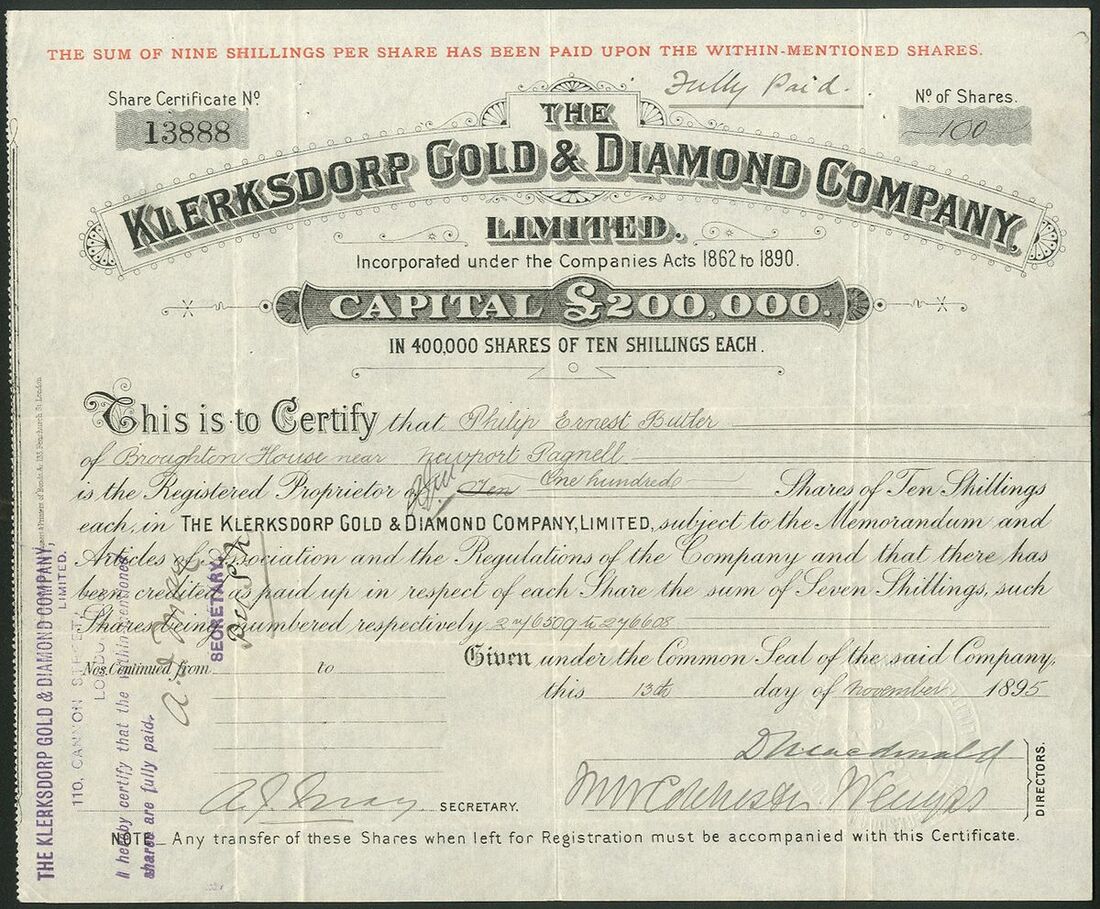 THE SUM OF NINE SHILLINGS PER SHARE HAS BEEN PAID UPON THE WITHIN-MENTIONED SHARES.
Fully Paid.
Share Certificate No.
13888
No. of Shares.
100
THE
KLERKSDORP GOLD & DIAMOND COMPANY,
LIMITED.
Incorporated under the Companies Acts 1862 to 1890.
CAPITAL £200,000.
IN 400,000 SHARES OF TEN SHILLINGS EACH.
This is to Certify that Philip Ernest Butler
of Broughton House near Newport Pagnell
is the Registered Proprietor of Ten One hundred Shares of Ten Shillings
each, in THE KLERKSDORP GOLD & DIAMOND COMPANY, LIMITED, subject to the Memorandum and
Articles of Association and the Regulations of the Company and that there has
been credited as paid up in respect of each Share the sum of Seven Shillings, such
Shares being numbered respectively 276509 to 276608
Nos. Continued from to
Given under the Common Seal of the said Company,
this 13th day of November 1895
D Macdonald
SECRETARY.
DIRECTORS.
NOTE_ Any transfer of these Shares when left for Registration must be accompanied with this Certificate.
THE KLERKSDORP GOLD & DIAMOND COMPANY,
LIMITED.
110, CANNON STREET,
LONDON
I hereby certify that the within-mentioned
shares are fully paid.
SECRETARY.